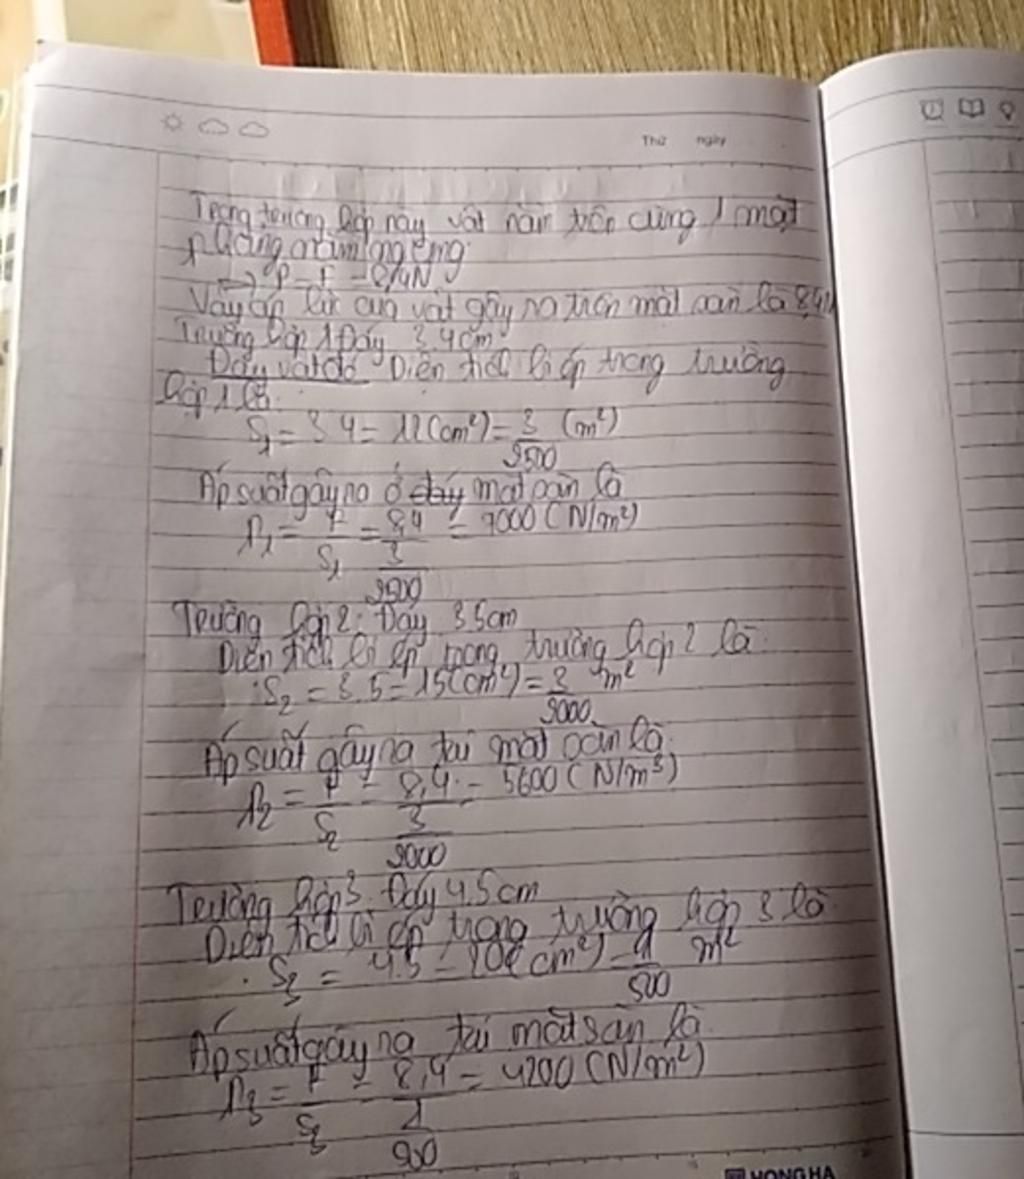 Thứ ngày
Trong trường hợp này vật nằm trên cùng 1 mặt
phẳng nằm ngang
=> P = F = 8,4N
Vậy áp lực của vật gây ra trên mặt sàn là 8,4N
Trường hợp 1 Đáy 3.4cm
Đáy vật đó Diện tích bị ép trong trường
hợp 1 là:
S1 = 3.4 = 12(cm²) = 3/2500 (m²)
Áp suất gây ra ở đáy mặt sàn là
P1 = F/S1 = 8,4/(3/2500) = 7000 (N/m²)
Trường hợp 2: Đáy 3.5cm
Diện tích bị ép trong trường hợp 2 là:
S2 = 3.5 = 15(cm²) = 3/2000 m²
Áp suất gây ra tại mặt sàn là:
P2 = F/S2 = 8,4/(3/2000) = 5600 (N/m³)
Trường hợp 3 Đáy 4.5cm
Diện tích bị ép trong trường hợp 3 là
S3 = 4.5 = 20(cm²) = 1/500 m²
Áp suất gây ra tại mặt sàn là
P3 = F/S3 = 8,4/(1/500) = 4200 (N/m²)
HONG HA